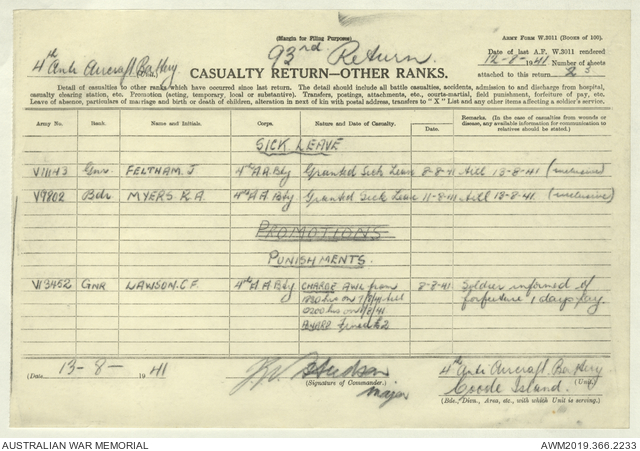 (Margin for Filing Purposes)
ARMY FORM W.3011 (BOOKS OF 100).
93rd Return.
Date of last A.F. W.3011 rendered
12-8-1941. Number of sheets
attached to this return
4th Anti Aircraft Battery
CASUALTY RETURN—OTHER RANKS.
Detail of casualties to other ranks which have occurred since last return. The detail should include all battle casualties, accidents, admission to and discharge from hospital,
casualty clearing station, etc. Promotion (acting, temporary, local or substantive). Transfers, postings, attachments, etc., courts-martial, field punishment, forfeiture of pay, etc.
Leave of absence, particulars of marriage and birth or death of children, alteration in next of kin with postal address, transfers to "X" List and any other items affecting a soldier's service.
Army No. Rank. Name and Initials. Corps. Nature and Date of Casualty. Date. Remarks. (In the case of casualties from wounds or disease, any available information for communication to relatives should be stated.)
SICK LEAVE
V11143 Gnr FELTHAM. J 4th A A Bty Granted Sick Leave 8-8-41 till 13-8-41 (inclusive)
V9802 Bdr MYERS. R.A. 4th A A Bty Granted Sick Leave 11-8-41 till 18-8-41. (inclusive)
PROMOTIONS
PUNISHMENTS.
V13452 GNR LAWSON. C.F. 4th A A Bty CHARGE AWL from 8-8-41. Soldier informed of
hrs on 7/8/41 till forfeiture 1 days pay.
0200 hrs on 8/8/41
AWARD Fined
(Date 13-8-1941 Hudson 4th Anti Aircraft Battery (Unit)
(Signature of Commander.) Coode Island.
Major (Bde., Divn., Area, etc., with which Unit is serving.)
AUSTRALIAN WAR MEMORIAL AWM2019.366.2233